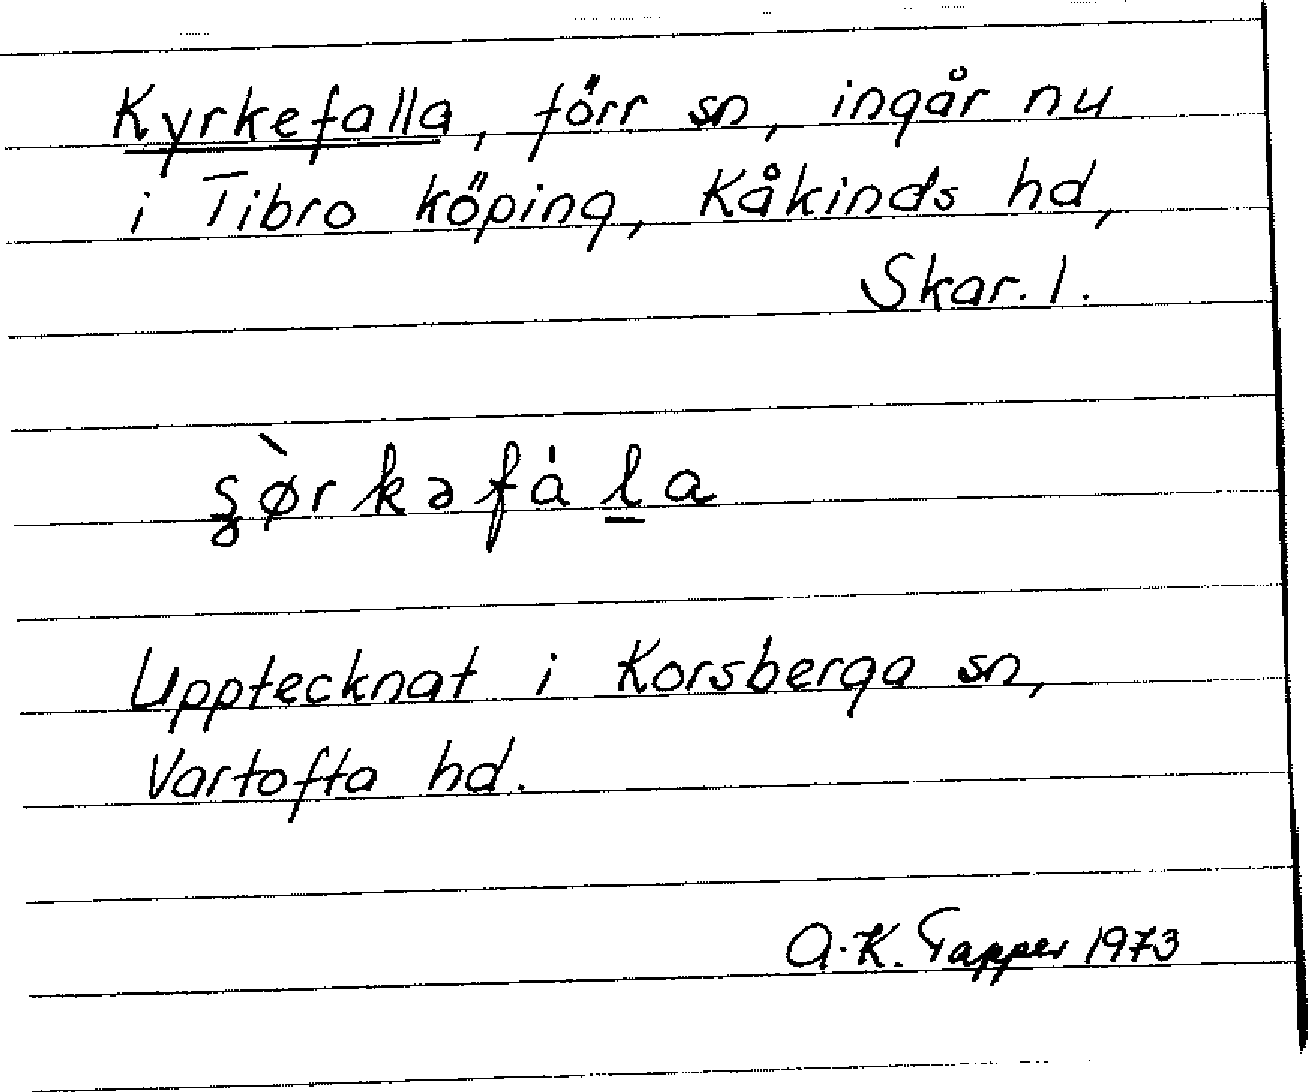 Kyrkefalla, förr sn, ingår nu
i Tibro köping, Kåkinds hd,
Skar. l.
ʂø̀rkəfála
Upptecknat i Korsberga sn,
Vartofta hd.
A.K. Tapper 1973